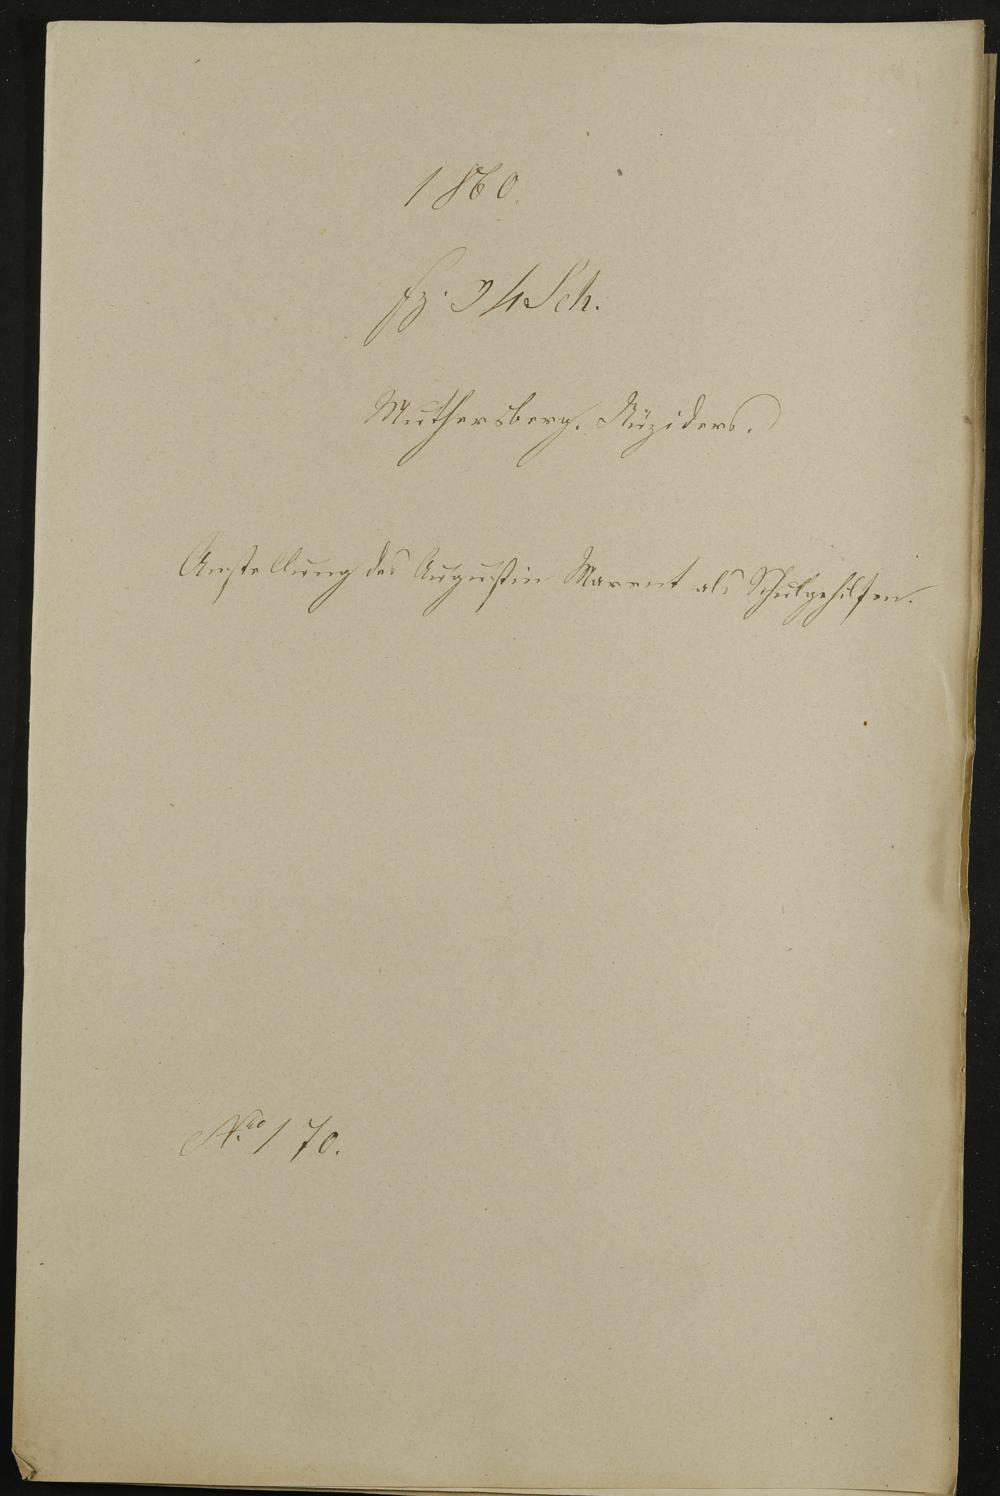 1860.
Fz. 24 Sch.
Muthersberg. Nüziders.
Anstellung des Augustin Marent als Schulgehilfen.
Nro 170.